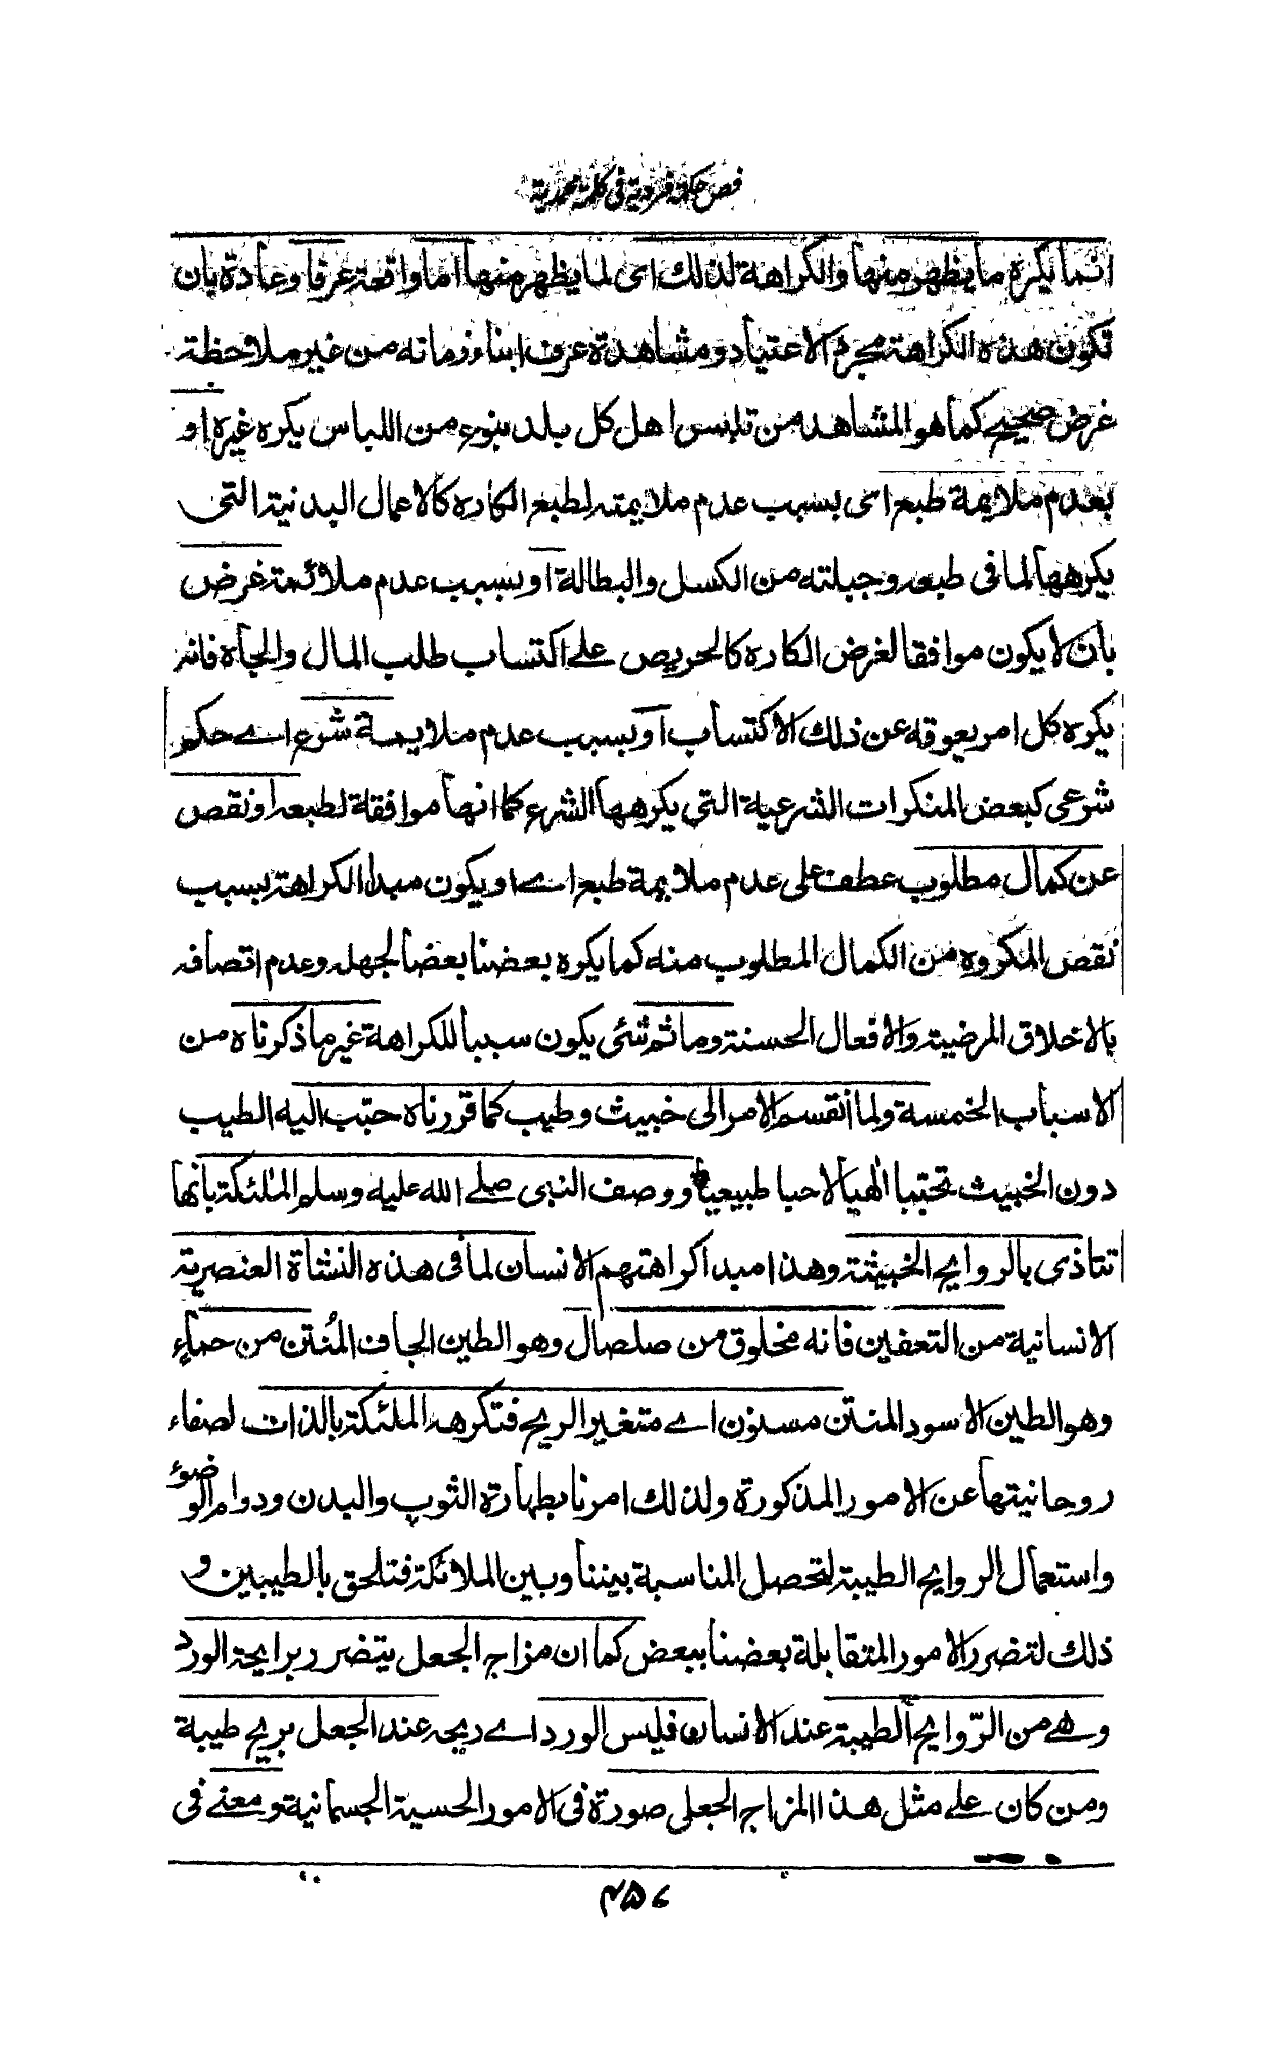 فص حكمة فردية في كلمة محمدية
انما يكره ما يظهر منها والكراهة لذلك اى لما يظهر منها اما واقعة عرفا وعادة بان
تكون هذه الكراهة بمجرد الاعتياد ومشاهدة عرف ابناء زمانه من غير ملاحظة
غرض صحيح كما هو المشاهد من تلبس اهل كل بلد بنوع من اللباس يكره غيره او
بعدم ملايمة طبع اى بسبب عدم ملايمته لطبع الكاره كالاعمال البدنية التى
يكرهها لما فى طبعه وجبلته من الكسل والبطالة او بسبب عدم ملائمة غرض
بان لا يكون موافقا لغرض الكاره كالحريص على اكتساب طلب المال والجاه فانه
يكره كل امر يعوقه عن ذلك الاكتساب او بسبب عدم ملايمة شرع اے حكم
شرعى كبعض المنكرات الشرعية التى يكرهها الشرع كما انها موافقة لطبعه او نقص
عن كمال مطلوب عطف على عدم ملايمة طبع اے او يكون مبدا الكراهة بسبب
نقص المكروه من الكمال المطلوب منه كما يكره بعضنا بعضا لجهله وعدم اتصافه
بالاخلاق المرضية والافعال الحسنة وما ثم شئى يكون سببا للكراهة غير ما ذكرناه من
الاسباب الخمسة ولما انقسم الامر الى خبيث وطيب كما قررناه حبّب اليه الطيب
دون الخبيث تحببا الٰهيا لا حبا طبيعيا ووصف النبى صلے الله عليه وسلم الملئكة بانها
تتاذى بالروايح الخبيثة وهذا مبدا كراهتهم الانسان لما فى هذه النشاة العنصرية
الانسانية من التعفين فانه مخلوق من صلصال وهو الطين الجاف المُنتن من حماءٍ
وهو الطين الاسود المنتن مسنون اے متغير الريح فتكرهه الملئكة بالذات لصفاء
روحانيتها عن الامور المذكورة ولذلك امرنا بطهارة الثوب والبدن ودوام الوضوء
واستعمال الروايح الطيبة لتحصل المناسبة بيننا وبين الملائكة فتلحق بالطيبين و
ذلك لتضرر الامور المتقابلة بعضنا ببعض كما ان مزاج الجعل يتضرر برايحة الورد
وهے من الرّوايح الطيبة عند الانسان فليس الورد اے ريحه عند الجعل بريح طيبة
ومن كان علے مثل هذا المزاج الجعلى صورة فى الامور الحسية الجسمانية ومعنے فى
۴۵۶